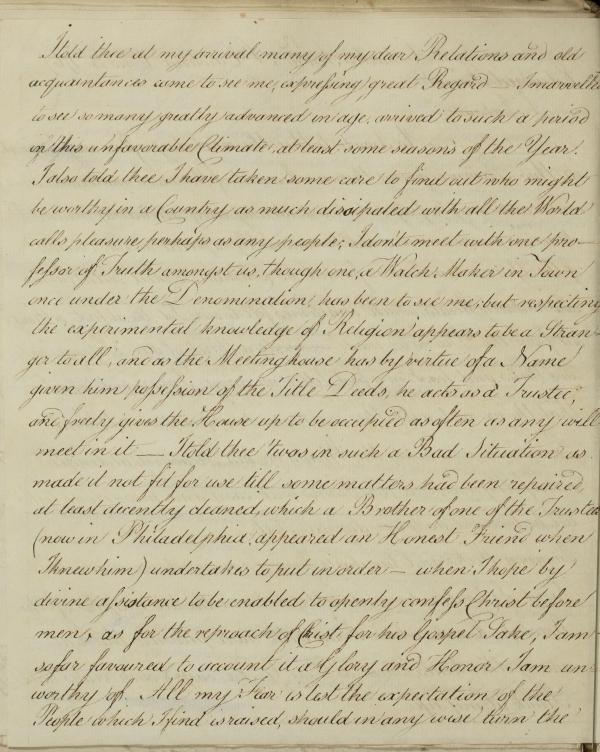 I told thee at my arrival many of my dear Relations and old
acquaintances came to see me, expressing great Regard — I marvelled
to see so many greatly advanced in age, arrived to such a period
in this unfavorable Climate, at least some seasons of the Year.
I also told thee I have taken some care to find out who might
be worthy in a Country as much dissipated with all the World
calls pleasure perhaps as any people; I don't meet with one pro-
fessor of Truth amongst us, though one, a Watch Maker in Town
once under the Denomination, has been to see me, but respecting
the experimental knowledge of Religion appears to be a Stran-
ger to all, and as the Meetinghouse has by virtue of a Name
given him possession of the Title Deeds, he acts as a Trustee,
and freely gives the House up to be occupied as often as any will
meet in it — I told thee 'twas in such a Bad Situation as
made it not fit for use till some matters had been repaired,
at least decently cleaned, which a Brother of one of the Trustees
(now in Philadelphia, appeared an Honest Friend when
I knew him) undertakes to put in order — when I hope by
divine assistance to be enabled to openly confess Christ before
men, as for the reproach of Christ for his Gospel Sake, I am
so far favoured to account it a Glory and Honor I am un-
worthy of. All my Fear is lest the expectation of the
People which I find is raised, should in any wise turn the